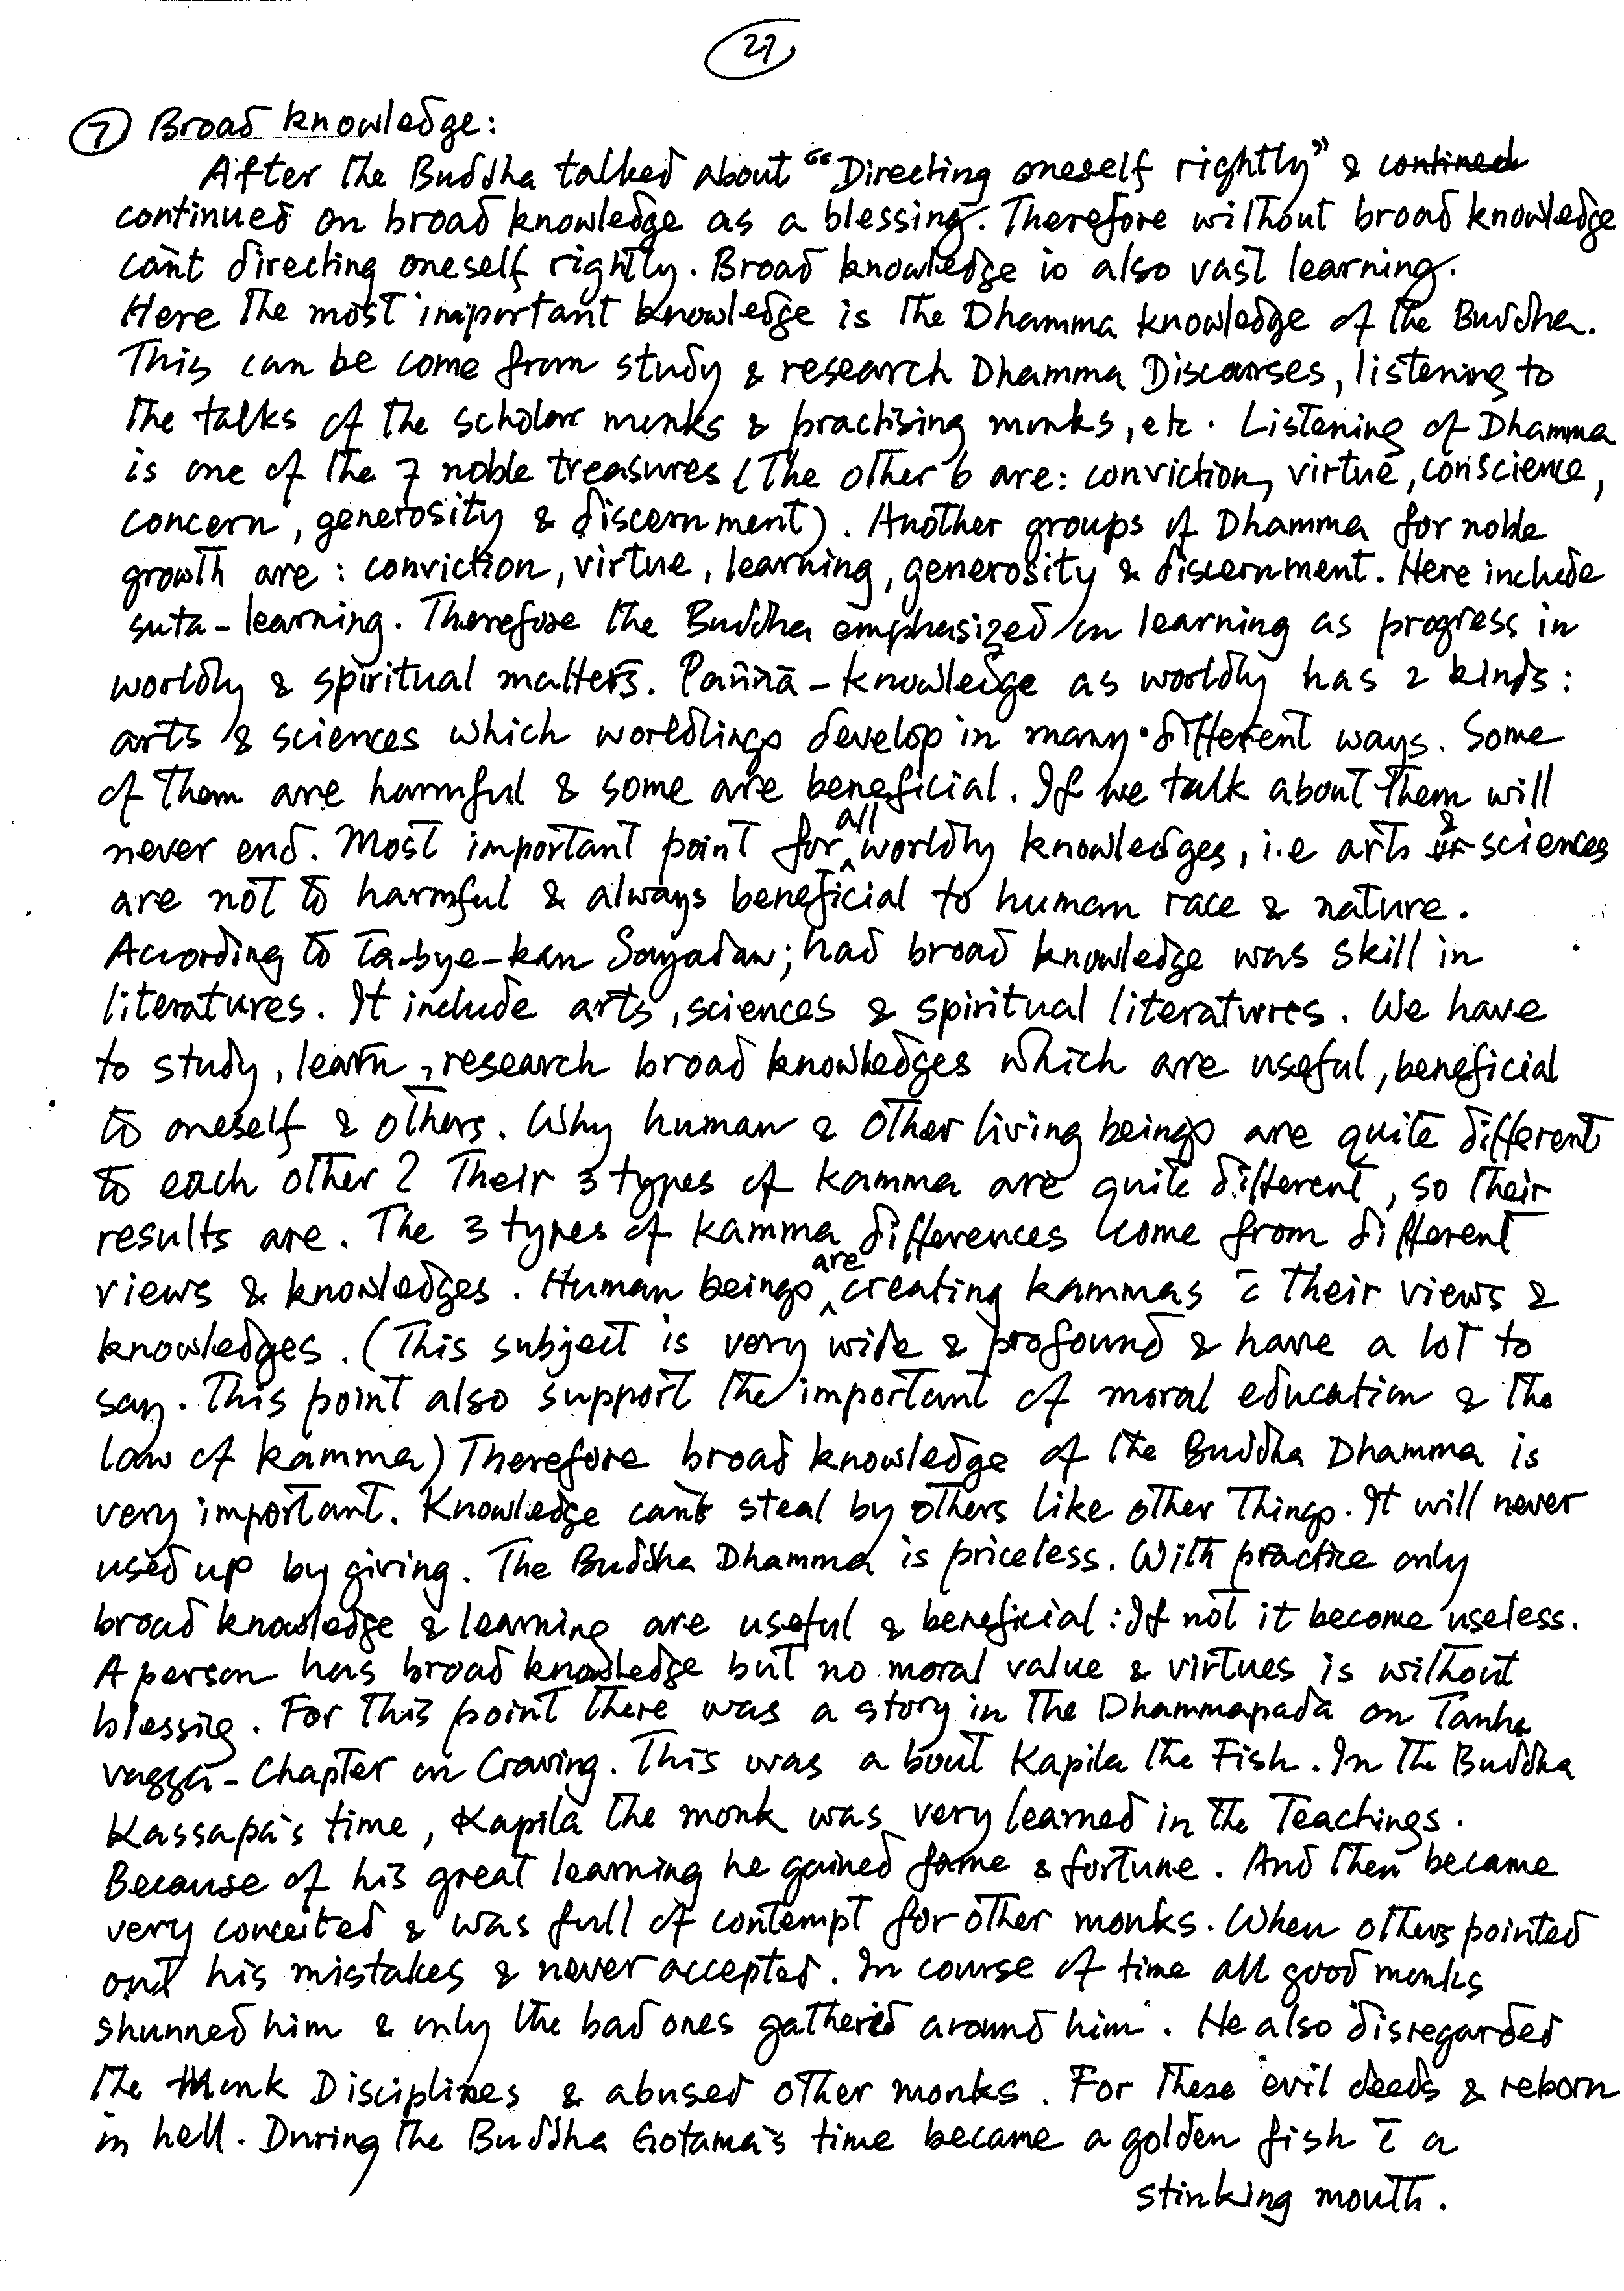 27
⑦ Broad knowledge:
After the Buddha talked about "Directing oneself rightly" & contined
continued on broad knowledge as a blessing. Therefore without broad knowledge
can't directing oneself rightly. Broad knowledge is also vast learning.
Here the most important knowledge is the Dhamma knowledge of the Buddha.
This can be come from study & research Dhamma Discourses, listening to
the talks of the scholar monks & practising monks, etc. Listening of Dhamma
is one of the 7 noble treasures (The other 6 are: conviction, virtue, conscience,
concern, generosity & discernment). Another groups of Dhamma for noble
growth are: conviction, virtue, learning, generosity & discernment. Here include
suta-learning. Therefore the Buddha emphasized on learning as progress in
worldly & spiritual matters. Paññā-knowledge as worldly has 2 kinds:
arts & sciences which worldlings develop in many different ways. Some
of them are harmful & some are beneficial. If we talk about them will
never end. Most important point for all worldly knowledges, i.e arts & sciences
are not to harmful & always beneficial to human race & nature.
According to Ta-bye-kan Sayadaw; had broad knowledge was skill in
literatures. It include arts, sciences & spiritual literatures. We have
to study, learn, research broad knowledges which are useful, beneficial
to oneself & others. Why human & other living beings are quite different
to each other? Their 3 types of kamma are quite different, so their
results are. The 3 types of kamma differences come from different
views & knowledges. Human beings are creating kammas c̄ their views &
knowledges. (This subject is very wide & profound & have a lot to
say. This point also support the important of moral education & the
law of kamma) Therefore broad knowledge of the Buddha Dhamma is
very important. Knowledge can't steal by others like other things. It will never
used up by giving. The Buddha Dhamma is priceless. With practice only
broad knowledge & learning are useful & beneficial: If not it become useless.
A person has broad knowledge but no moral value & virtues is without
blessing. For this point there was a story in the Dhammapada on Tanha
vagga-Chapter on Craving. This was a bout Kapila the Fish. In the Buddha
Kassapa's time, Kapila the monk was very learned in the Teachings.
Because of his great learning he gained fame & fortune. And then became
very conceited & was full of contempt for other monks. When others pointed
out his mistakes & never accepted. In course of time all good monks
shunned him & only the bad ones gathered around him. He also disregarded
the Monk Disciplines & abused other monks. For these evil deeds & reborn
in hell. During the Buddha Gotama's time became a golden fish c̄ a
stinking mouth.